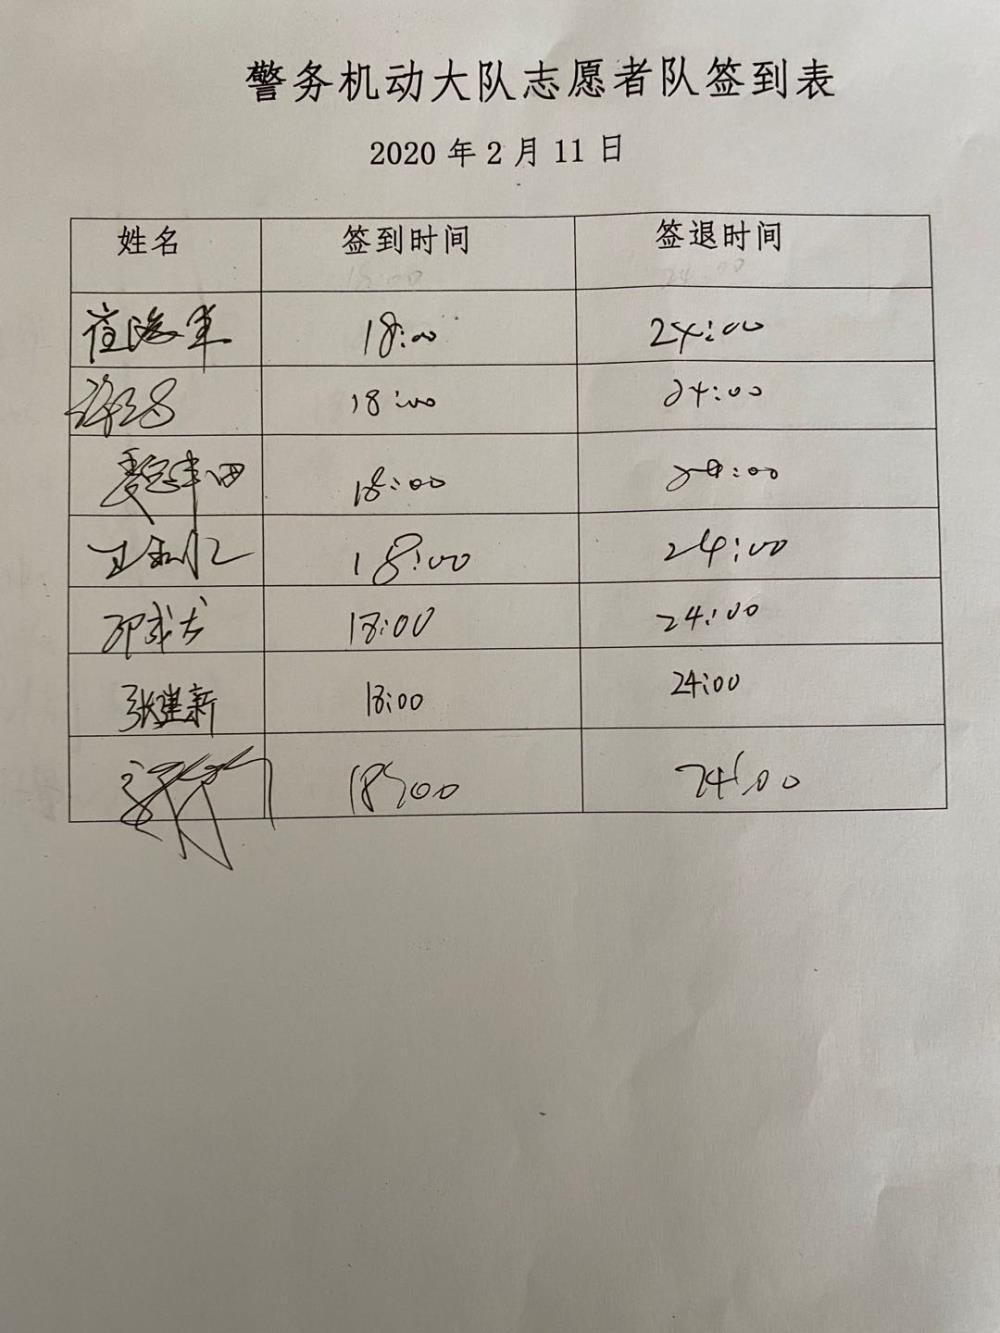 警务机动大队志愿者队签到表
2020 年 2 月 11 日
姓名 签到时间 签退时间
18:00 24:00
崔海军 18:00 24:00
18:00 24:00
18:00 24:00
18:00 24:00
18:00 24:00
张建新 18:00 24:00
18:00 24:00